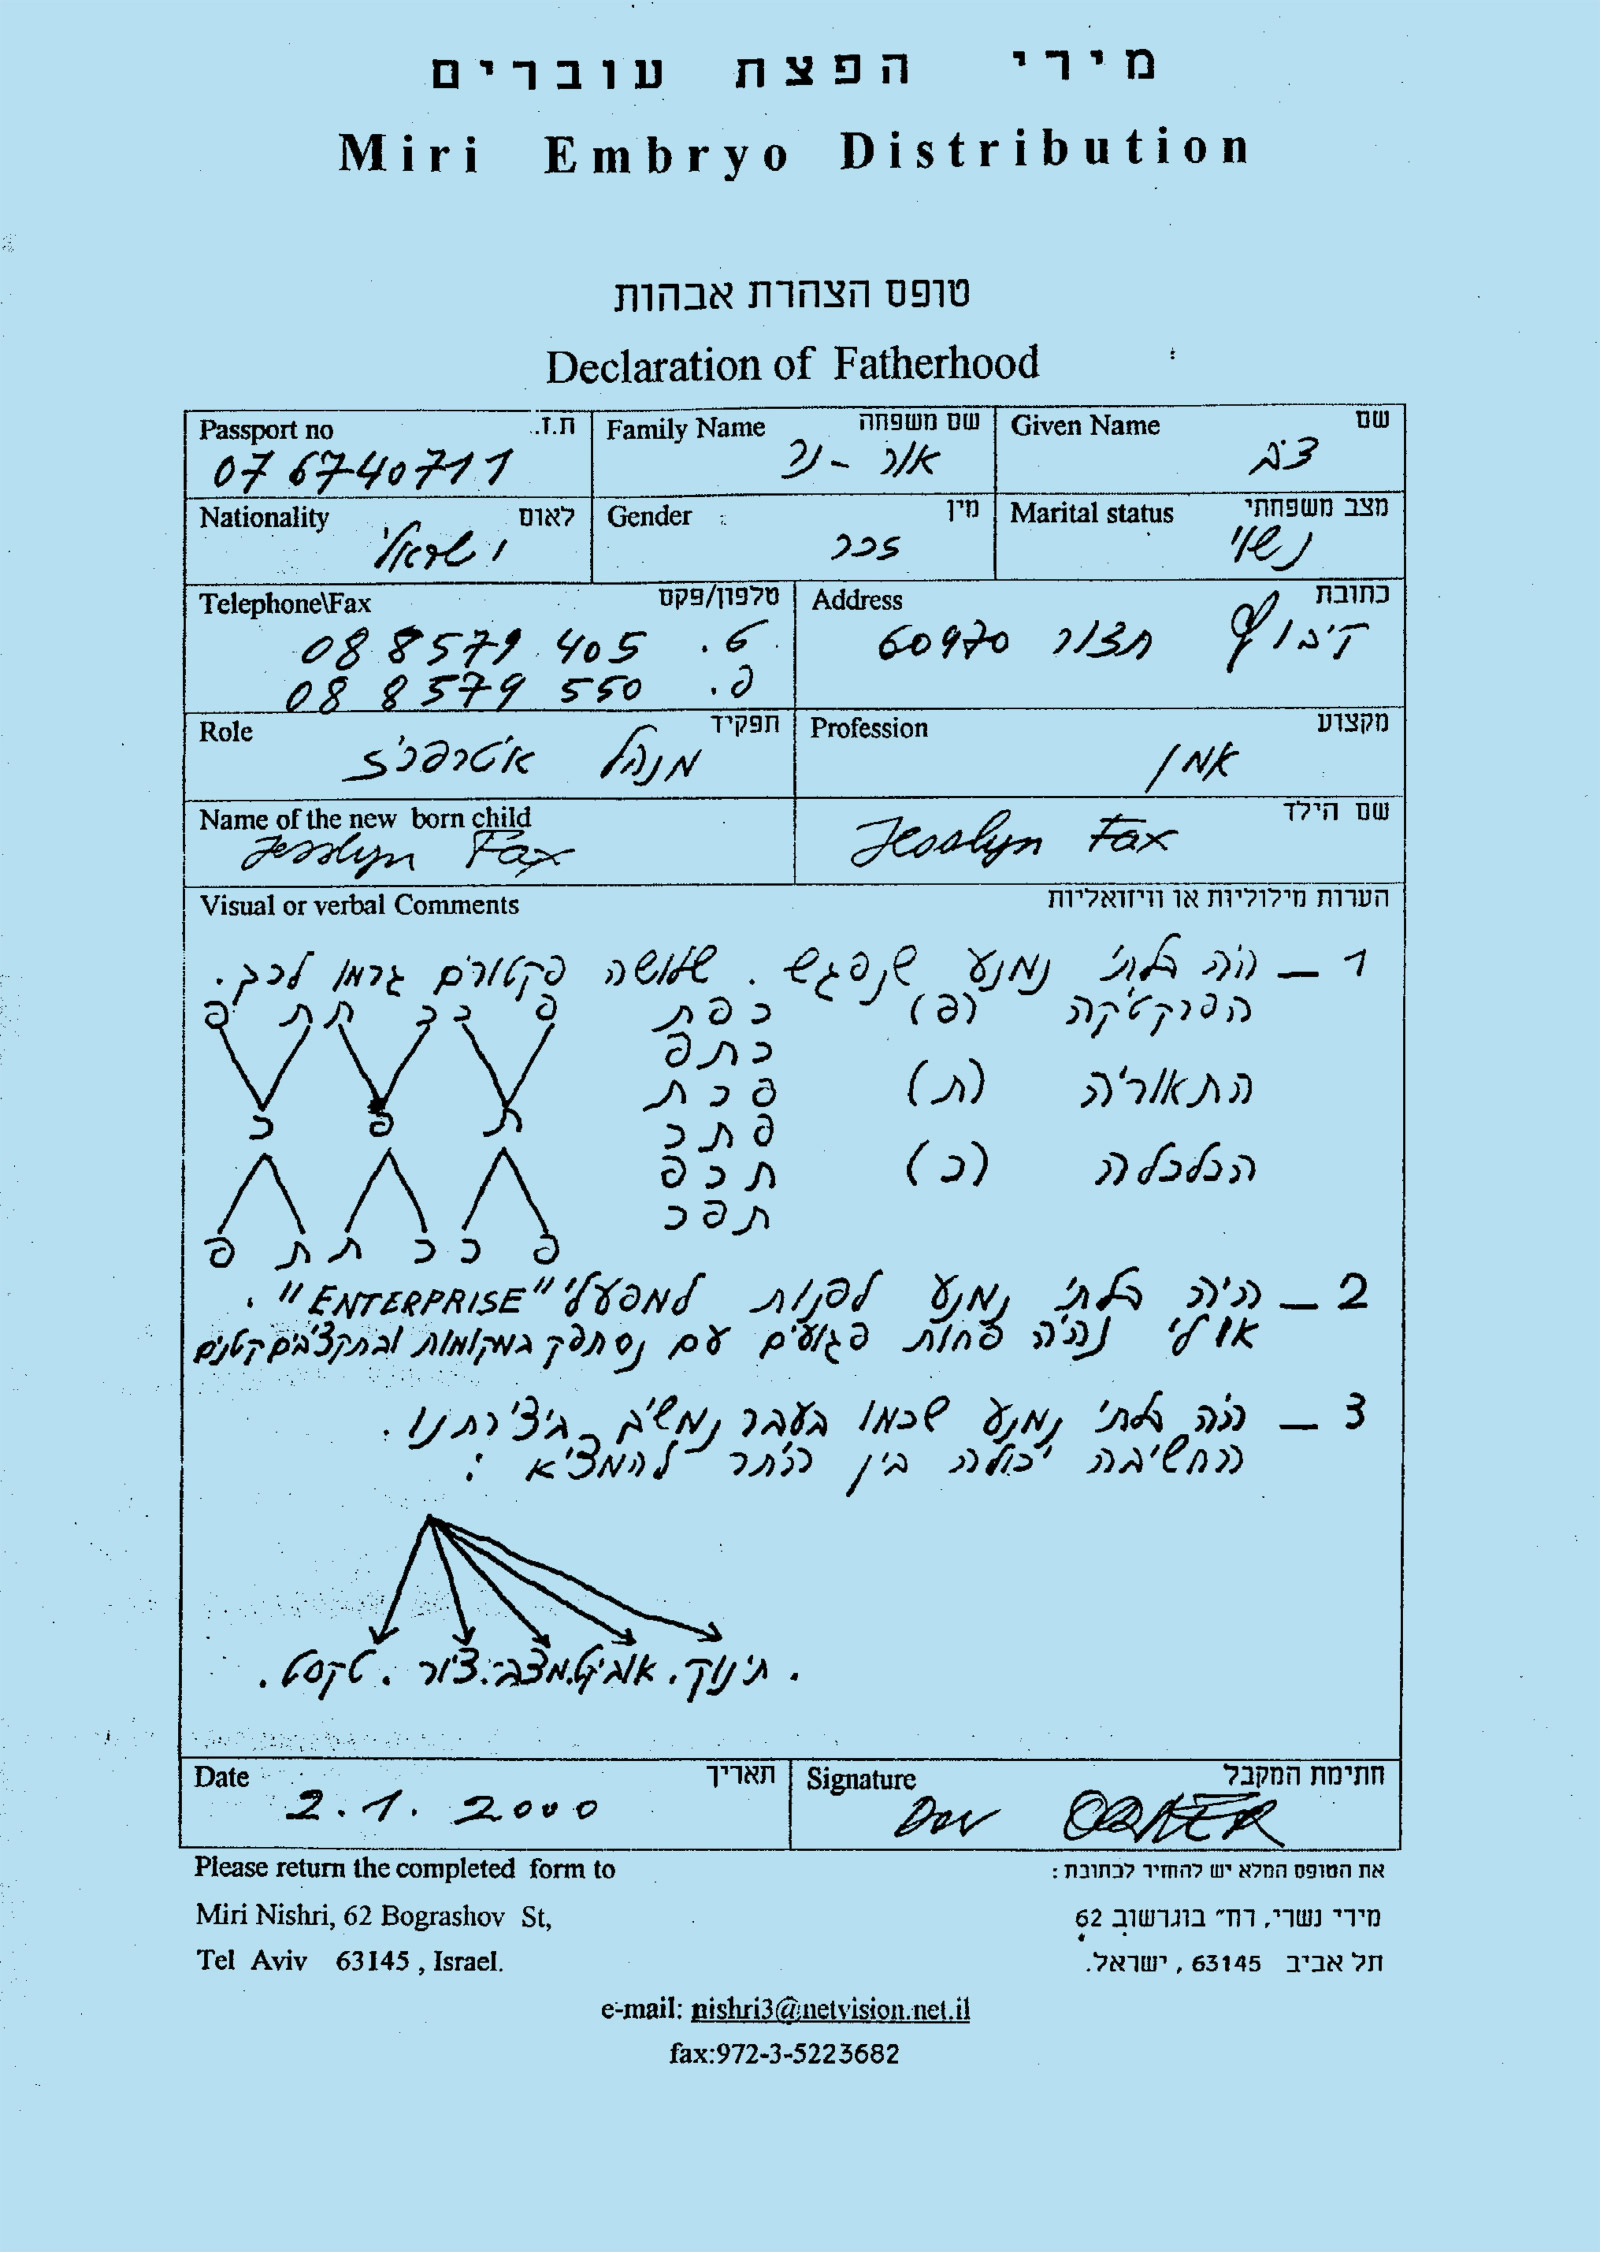 מירי הפצת עוברים
Miri Embryo Distribution
טופס הצהרת אבהות
Declaration of Fatherhood
Passport no ת.ז.
076740711
Family Name שם משפחה
אור - נר
Given Name שם
דב
Nationality לאום
ישראלי
Gender מין
זכר
Marital status מצב משפחתי
נשוי
Telephone\Fax טלפון/פקס
ט. 08 8579 405
פ. 08 8579 550
Address כתובת
קיבוץ חצור 60970
Role תפקיד
מנהל
Profession מקצוע
אמן
Name of the new born child
Jesslyn Fax
שם הילד
Jesslyn Fax
Visual or verbal Comments הערות מילוליות או וויזואליות
1 – היה בלתי נמנע שנפגש. שלושה פקטורים גרמו לכך.
הפרקטיקה (פ) כפת
פ ת ת כ כ פ
כתפ
התאוריה (ת) פכת
כ פ ת
פתכ
הכלכלה (כ) תכפ
תפכ
פ ת ת כ כ פ
2 – היה בלתי נמנע לפנות למפעלי "ENTERPRISE".
אולי נהיה פחות פגועים עם נסתפק במקומות ובתקציבים קטנים
3 – היה בלתי נמנע שכמו בעבר נמשיך ביצירתנו.
החשיבה יכולה בין היתר להמציא:
תינוק. אוביקט. מצב. ציור. טקסט.
Date תאריך
2.1.2000
Signature חתימת המקבל
Dov ORNER
Please return the completed form to
את הטופס המלא יש להחזיר לכתובת:
Miri Nishri, 62 Bograshov St,
מירי נשרי, רח״ בוגרשוב 62
Tel Aviv 63145 , Israel.
תל אביב 63145 , ישראל.
e-mail: nishri3@netvision.net.il
fax:972-3-5223682